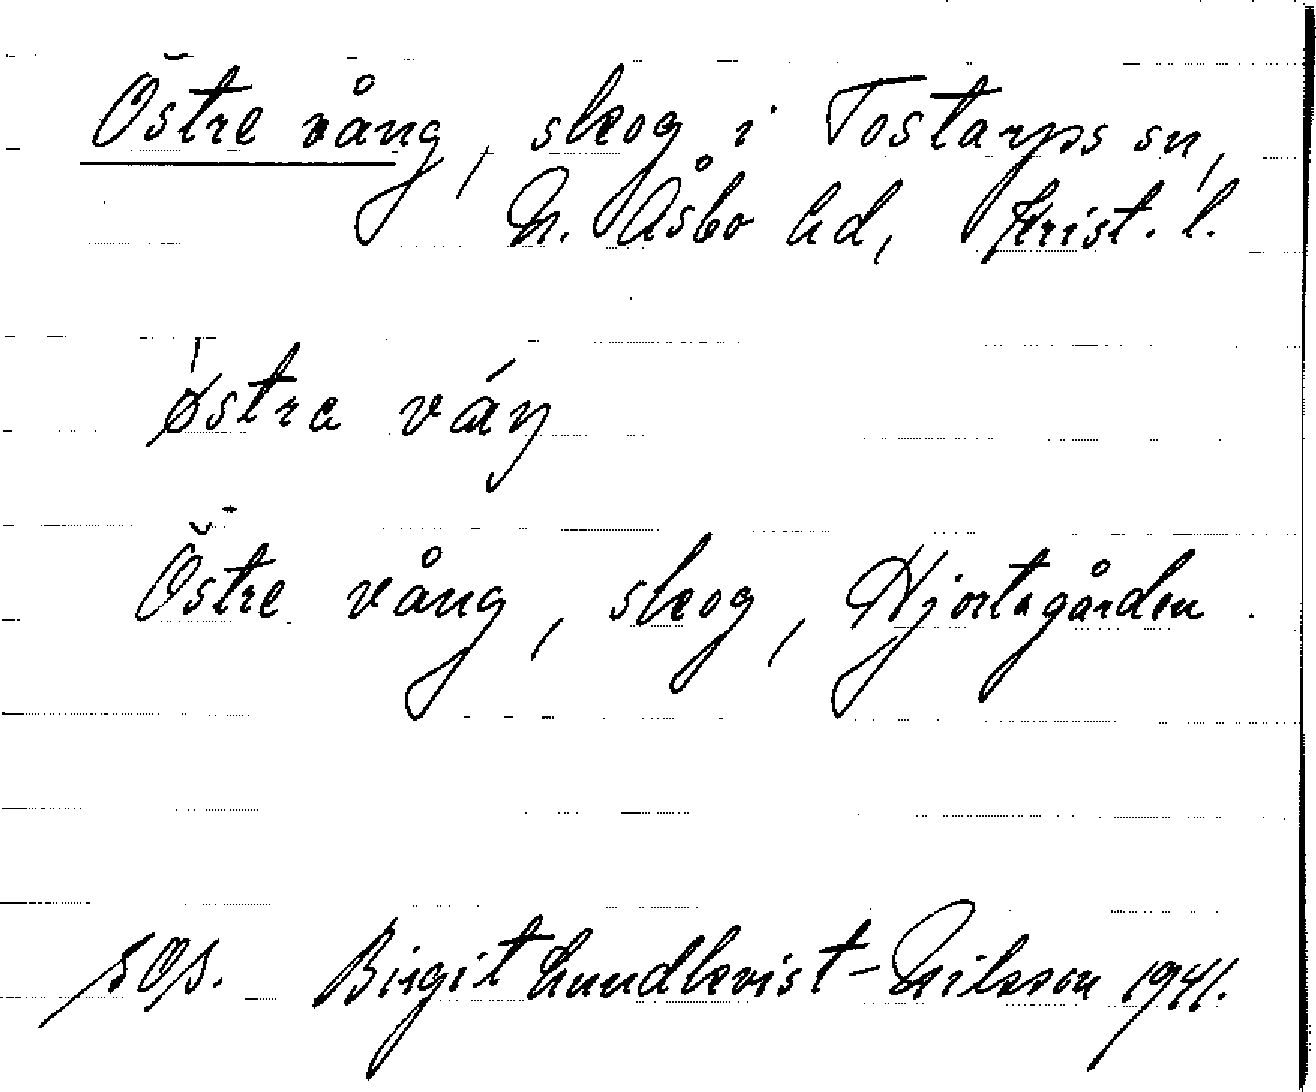 Östre vång, skog i Tostarps sn,
N. Åsbo hd, Krist. l.
østra váŋ
Östre vång, skog, Hjortagården.
Birgit Lundkvist-Nilsson 1941.